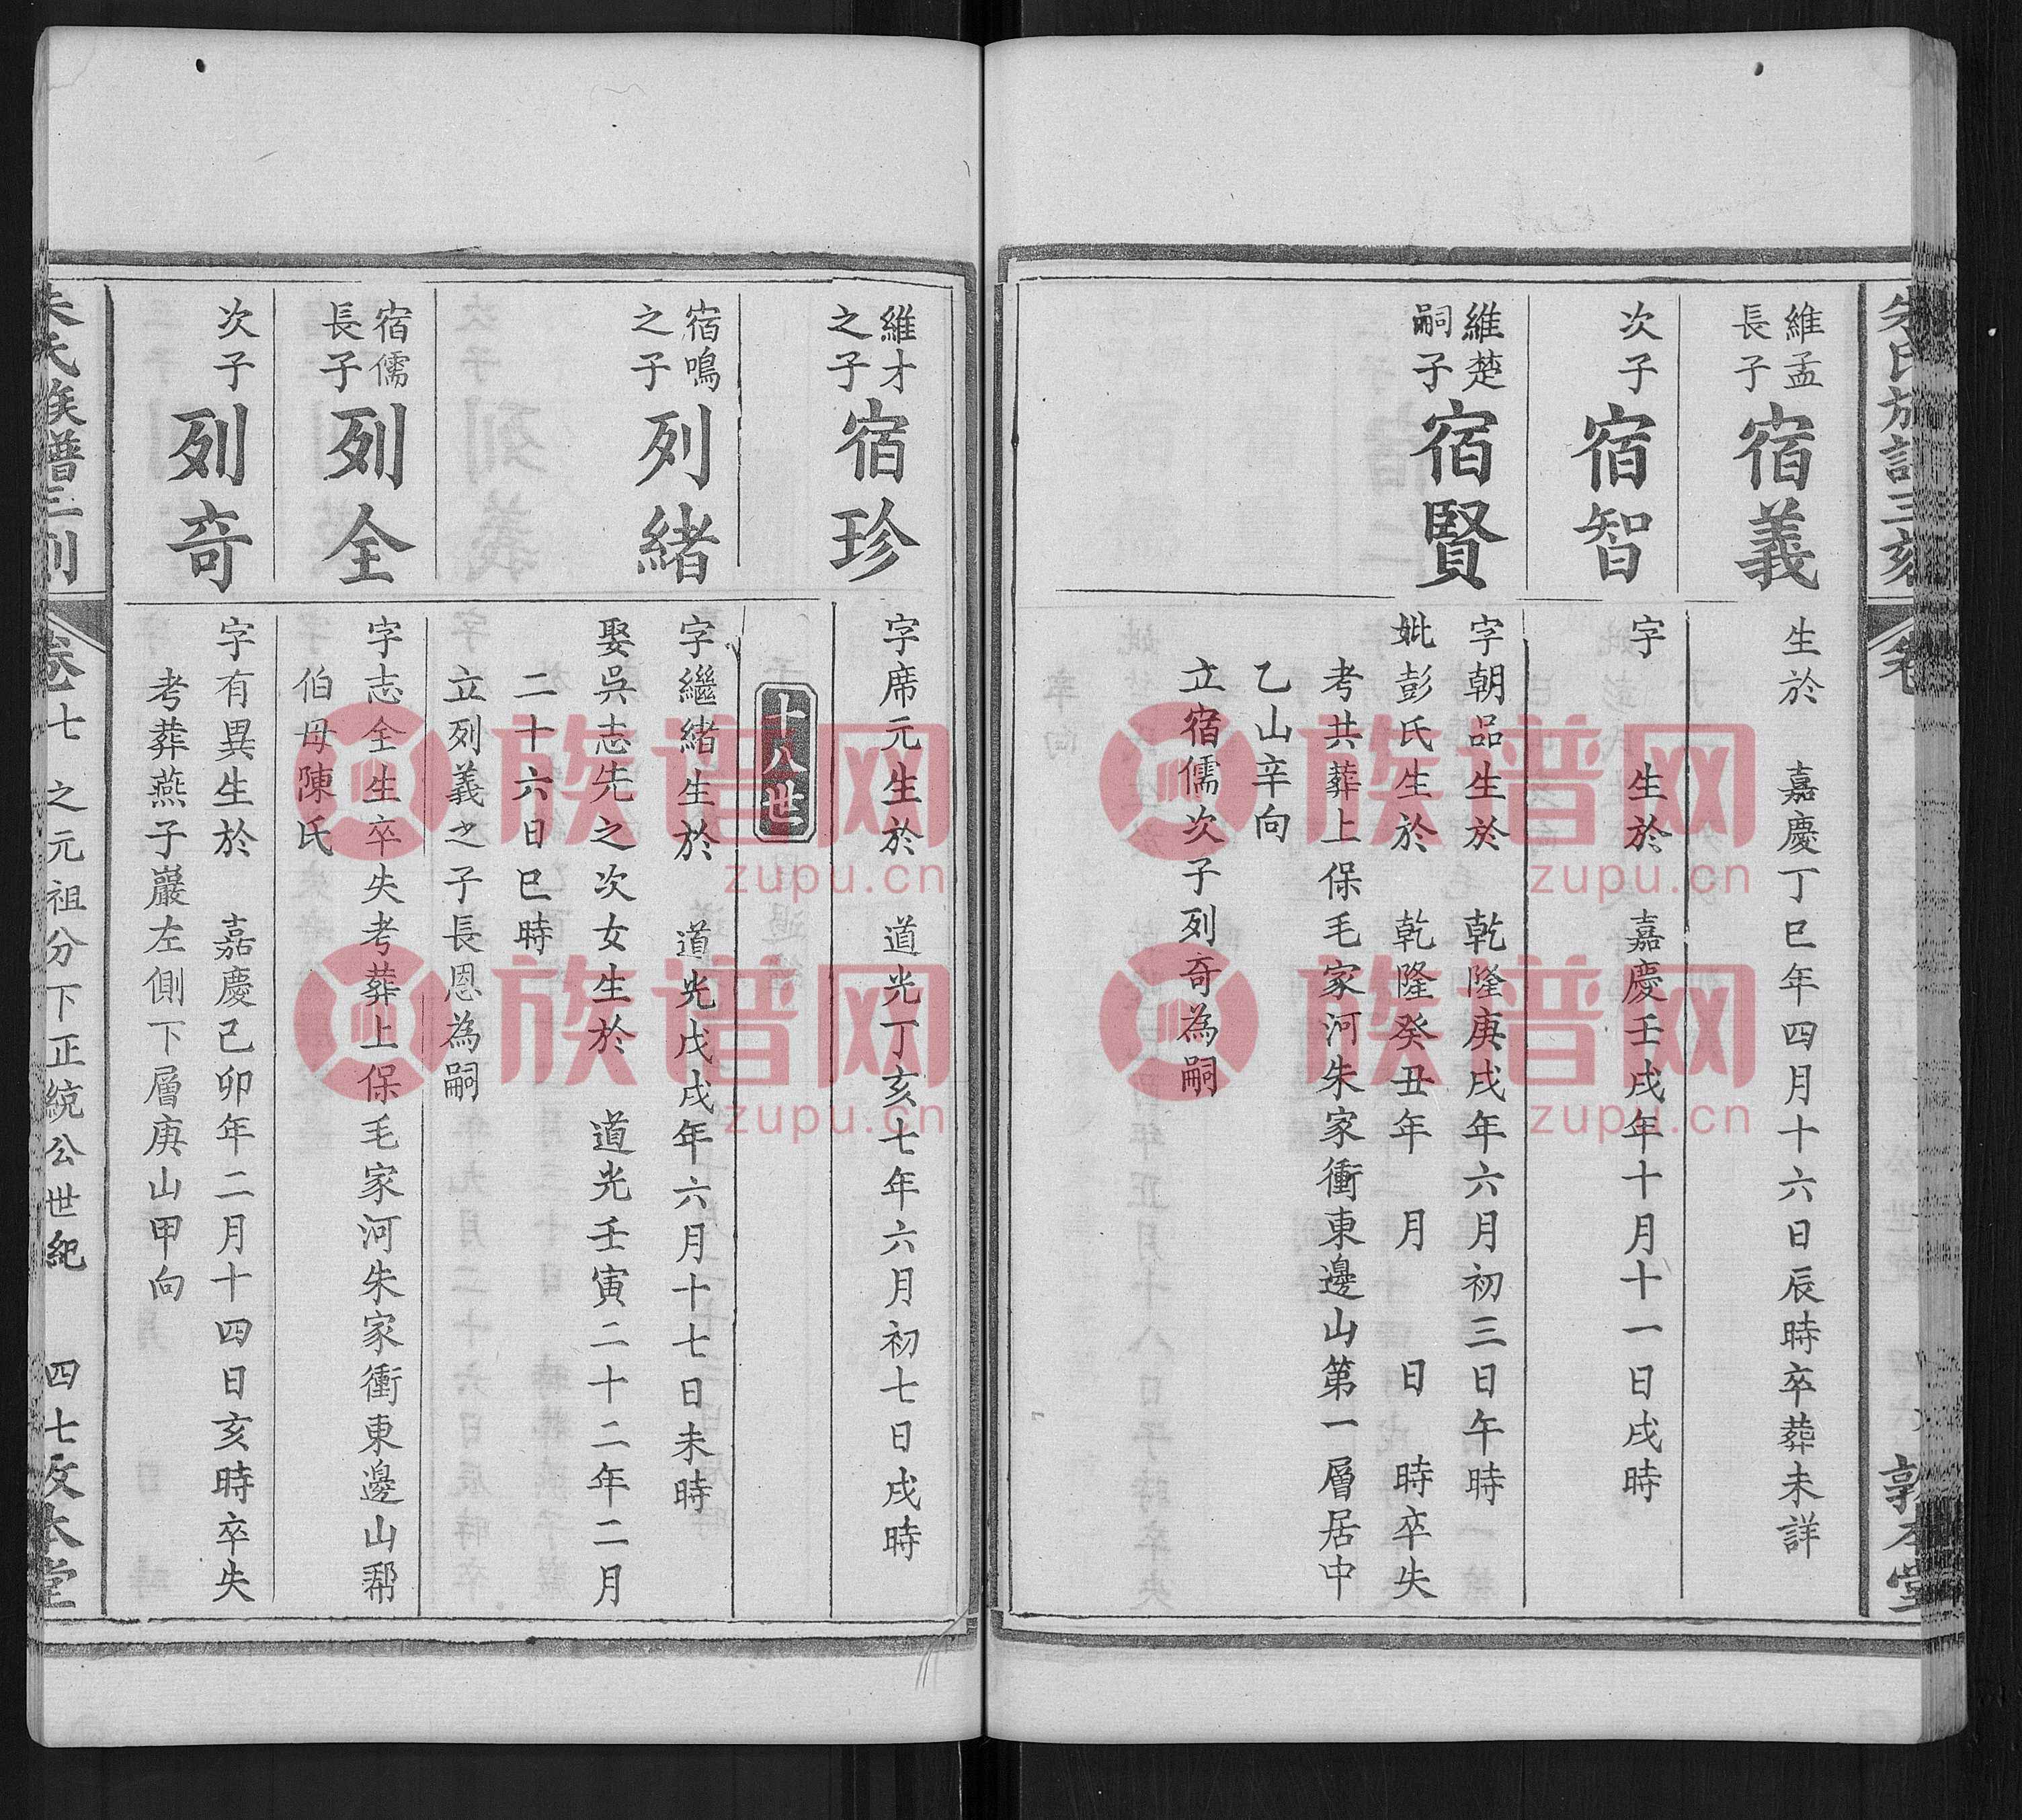 維孟
長子
宿義
生於　嘉慶丁巳年四月十六日辰時卒葬未詳
次子
宿智
字　生於　嘉慶壬戌年十月十一日戌時
維楚
嗣子
宿賢
字朝品生於　乾隆庚戌年六月初三日午時
妣彭氏生於　乾隆癸丑年　月　日　時卒失
考共葬上保毛家河朱家衝東邊山第一層居中
乙山辛向
立宿儒次子列奇為嗣
維才
之子
宿珍
字席元生於　道光丁亥七年六月初七日戌時
十八世
宿鳴
之子
列緒
字繼緒生於　道光戊戌年六月十七日未時
娶吳志先之次女生於　道光壬寅二十二年二月
二十六日巳時
立列義之子長恩為嗣
宿儒
長子
列全
字志全生卒失考葬上保毛家河朱家衝東邊山鄰
伯母陳氏
次子
列奇
字有異生於　嘉慶己卯年二月十四日亥時卒失
考葬燕子巖左側下層庚山甲向
朱氏族譜三刻
卷七　之元祖分下正統公世紀　四七
族谱网
zupu.cn
族谱网
zupu.cn
族谱网
zupu.cn
族谱网
zupu.cn